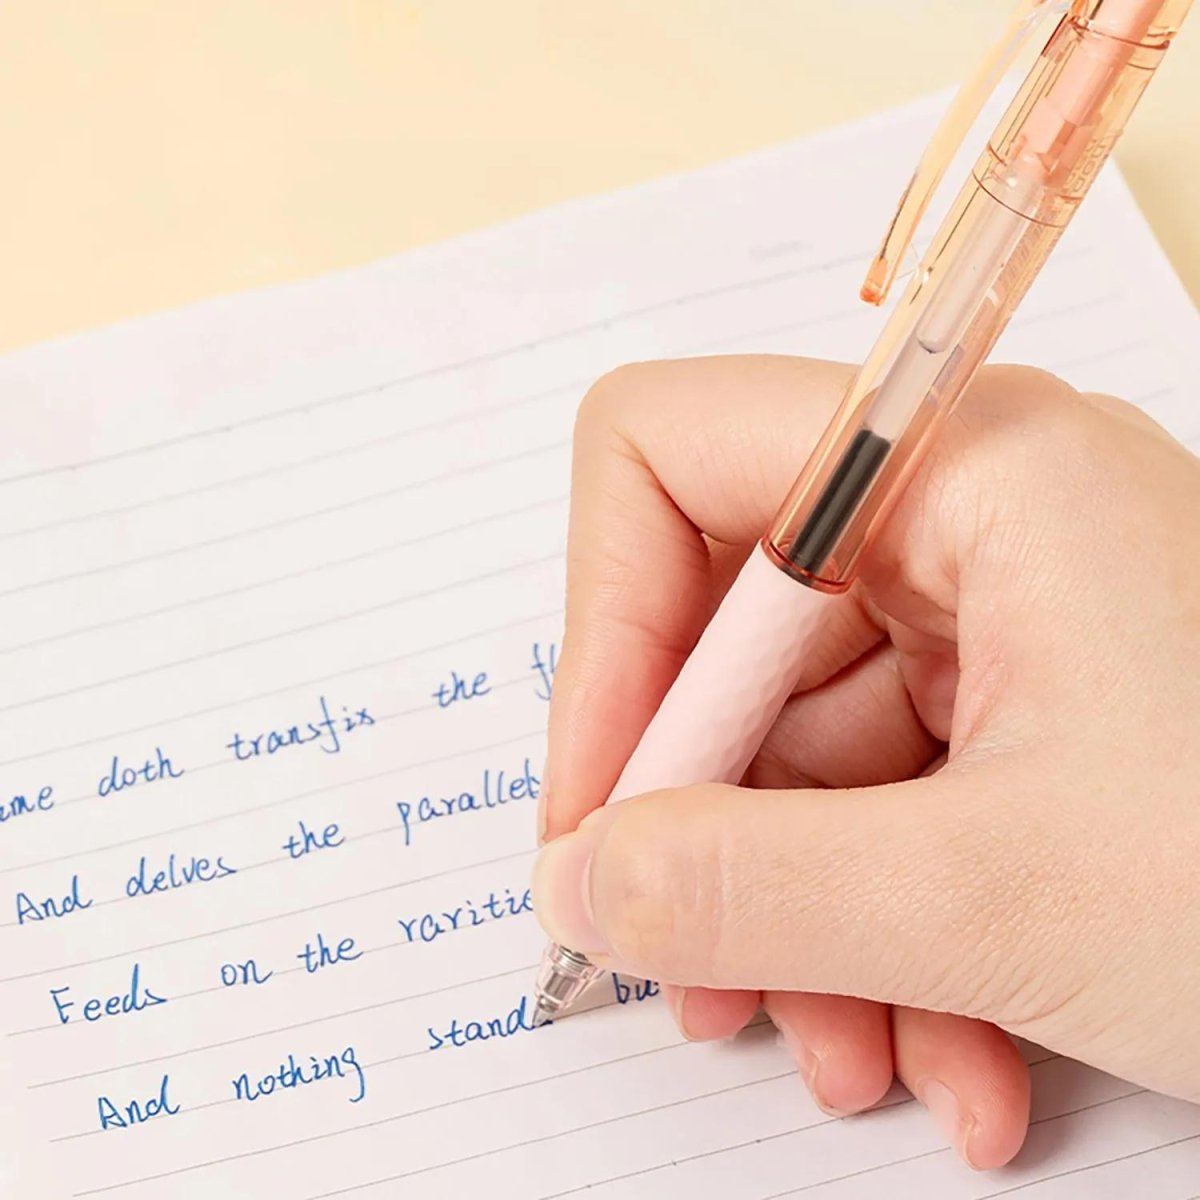 doth transfix the
And delves the parallels
Feeds on the rarities
And nothing stands